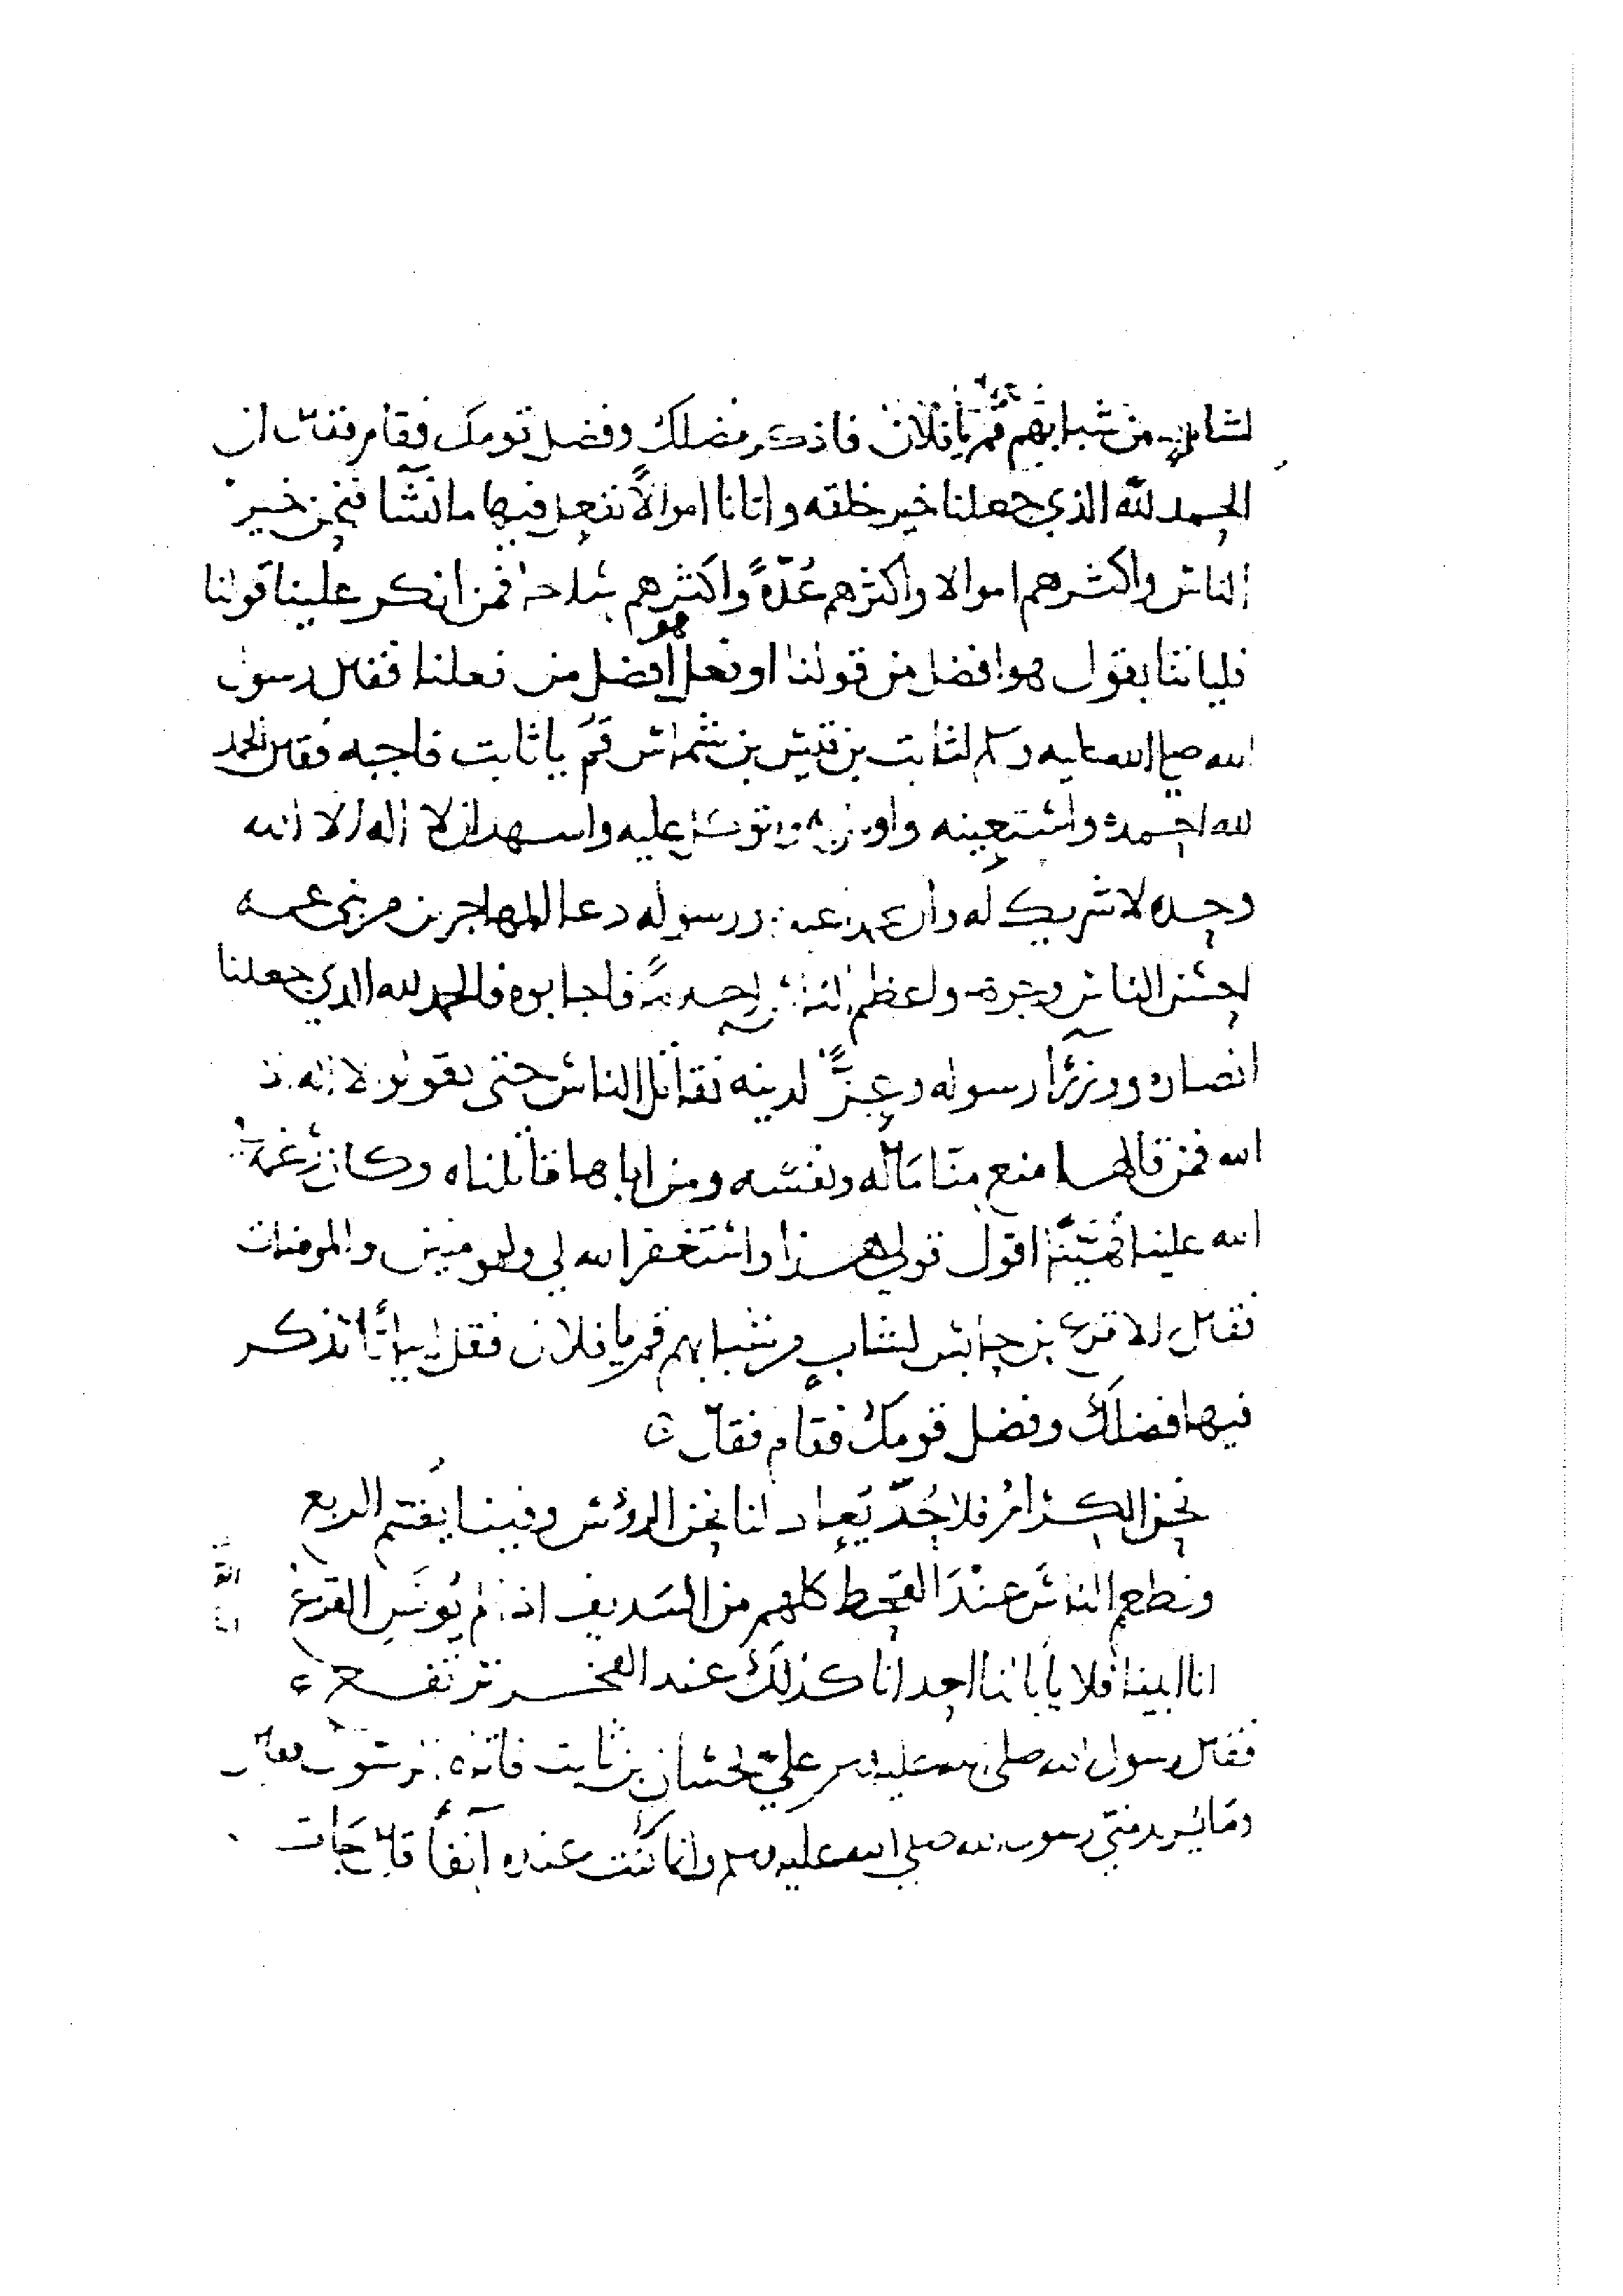 لشاب من شبابهم قم يا فلان فاذكر فضلك وفضل قومك فقام فقال ان
الحمد لله الذي جعلنا خير خلقه واتانا اموالاً نفعل فيها ما نشآ فنحن خير
الناس واكثرهم اموالا واكثرهم عُدّةً واكثرهم سلاحا فمن انكر علينا قولنا
فلياتنا بقول هو افضل من قولنا او فعل هو افضل من فعلنا فقال رسول
الله صلى الله عليه وسلم لثابت بن قيس بن شماس قُم يا ثابت فاجبه فقال الحمد
لله احمده واستعينه واومن به واتوكل عليه واسهد ان لا اله الا الله
وحده لا شريك له وان محمدا عبده ورسوله دعا المهاجرين من بني عمه
احسن الناس وجوها واعظم الناس احلاماً فاجابوه فالحمد لله الذي جعلنا
انصاره ووزرآ رسوله وعِزًّا لدينه نقاتل الناس حتى يقولوا لا اله الا
الله فمن قالها منع منّا ماله ونفسه ومن اباها قاتلناه وكان رغمه
الله علينا هيّنا اقول قولي هذا واستغفر الله لي وللمومنين والمومنات
فقال الاقرع بن حابس لشابٍ من شبابهم قم يا فلان فقل ابياتًا تذكر
فيها فضلك وفضل قومك فقام فقال
نحن الكرامُ فلا حُدّ يُعاد لنا نحن الرؤس وفينا يُقتم الربع
ونطعم الناس عندَ القحط كلهم من السديف اذا لم يُونَسِ القزع
انا ابينا فلا يابا لنا احد انا كذلك عند الفخر نرتفع
فقال رسول الله صلى الله عليه وسلم عليّ بحسان بن ثابت فاتاه الرسول فقال
وما يُريد منّي رسول الله صلى الله عليه وسلم وانما كُنت عنده آنفًا قال جات